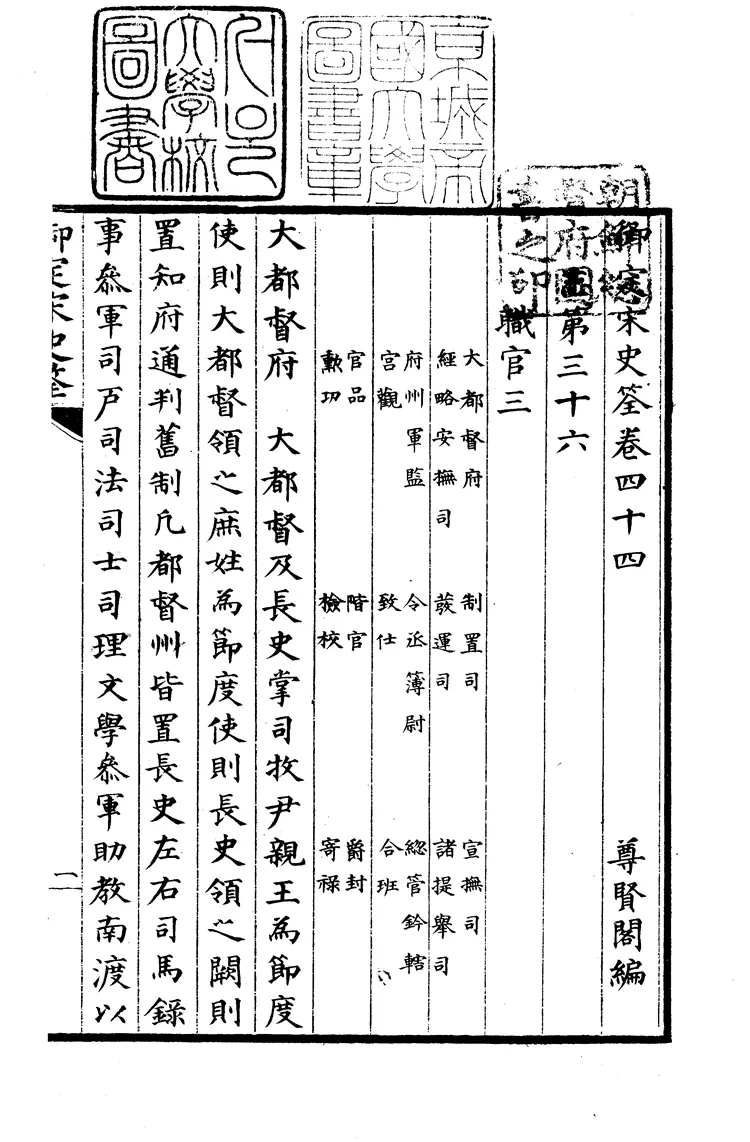 京城帝
國大學
圖書章
서울
大學校
圖書
朝鮮總
督府圖
書之印
御定宋史筌卷四十四 尊賢閣編
第三十六
職官三
大都督府 制置司 宣撫司
經略安撫司 發運司 諸提舉司
府州軍監 令丞簿尉 緫管鈐轄
宮觀 致仕 合班
官品 階官 爵封
勳功 檢校 寄祿
大都督府 大都督及長史掌司牧尹親王為節度
使則大都督領之庶姓為節度使則長史領之闕則
置知府通判舊制凡都督州皆置長史左右司馬錄
事叅軍司戶司法司士司理文學叅軍助敎南渡以
御定宋史筌
一